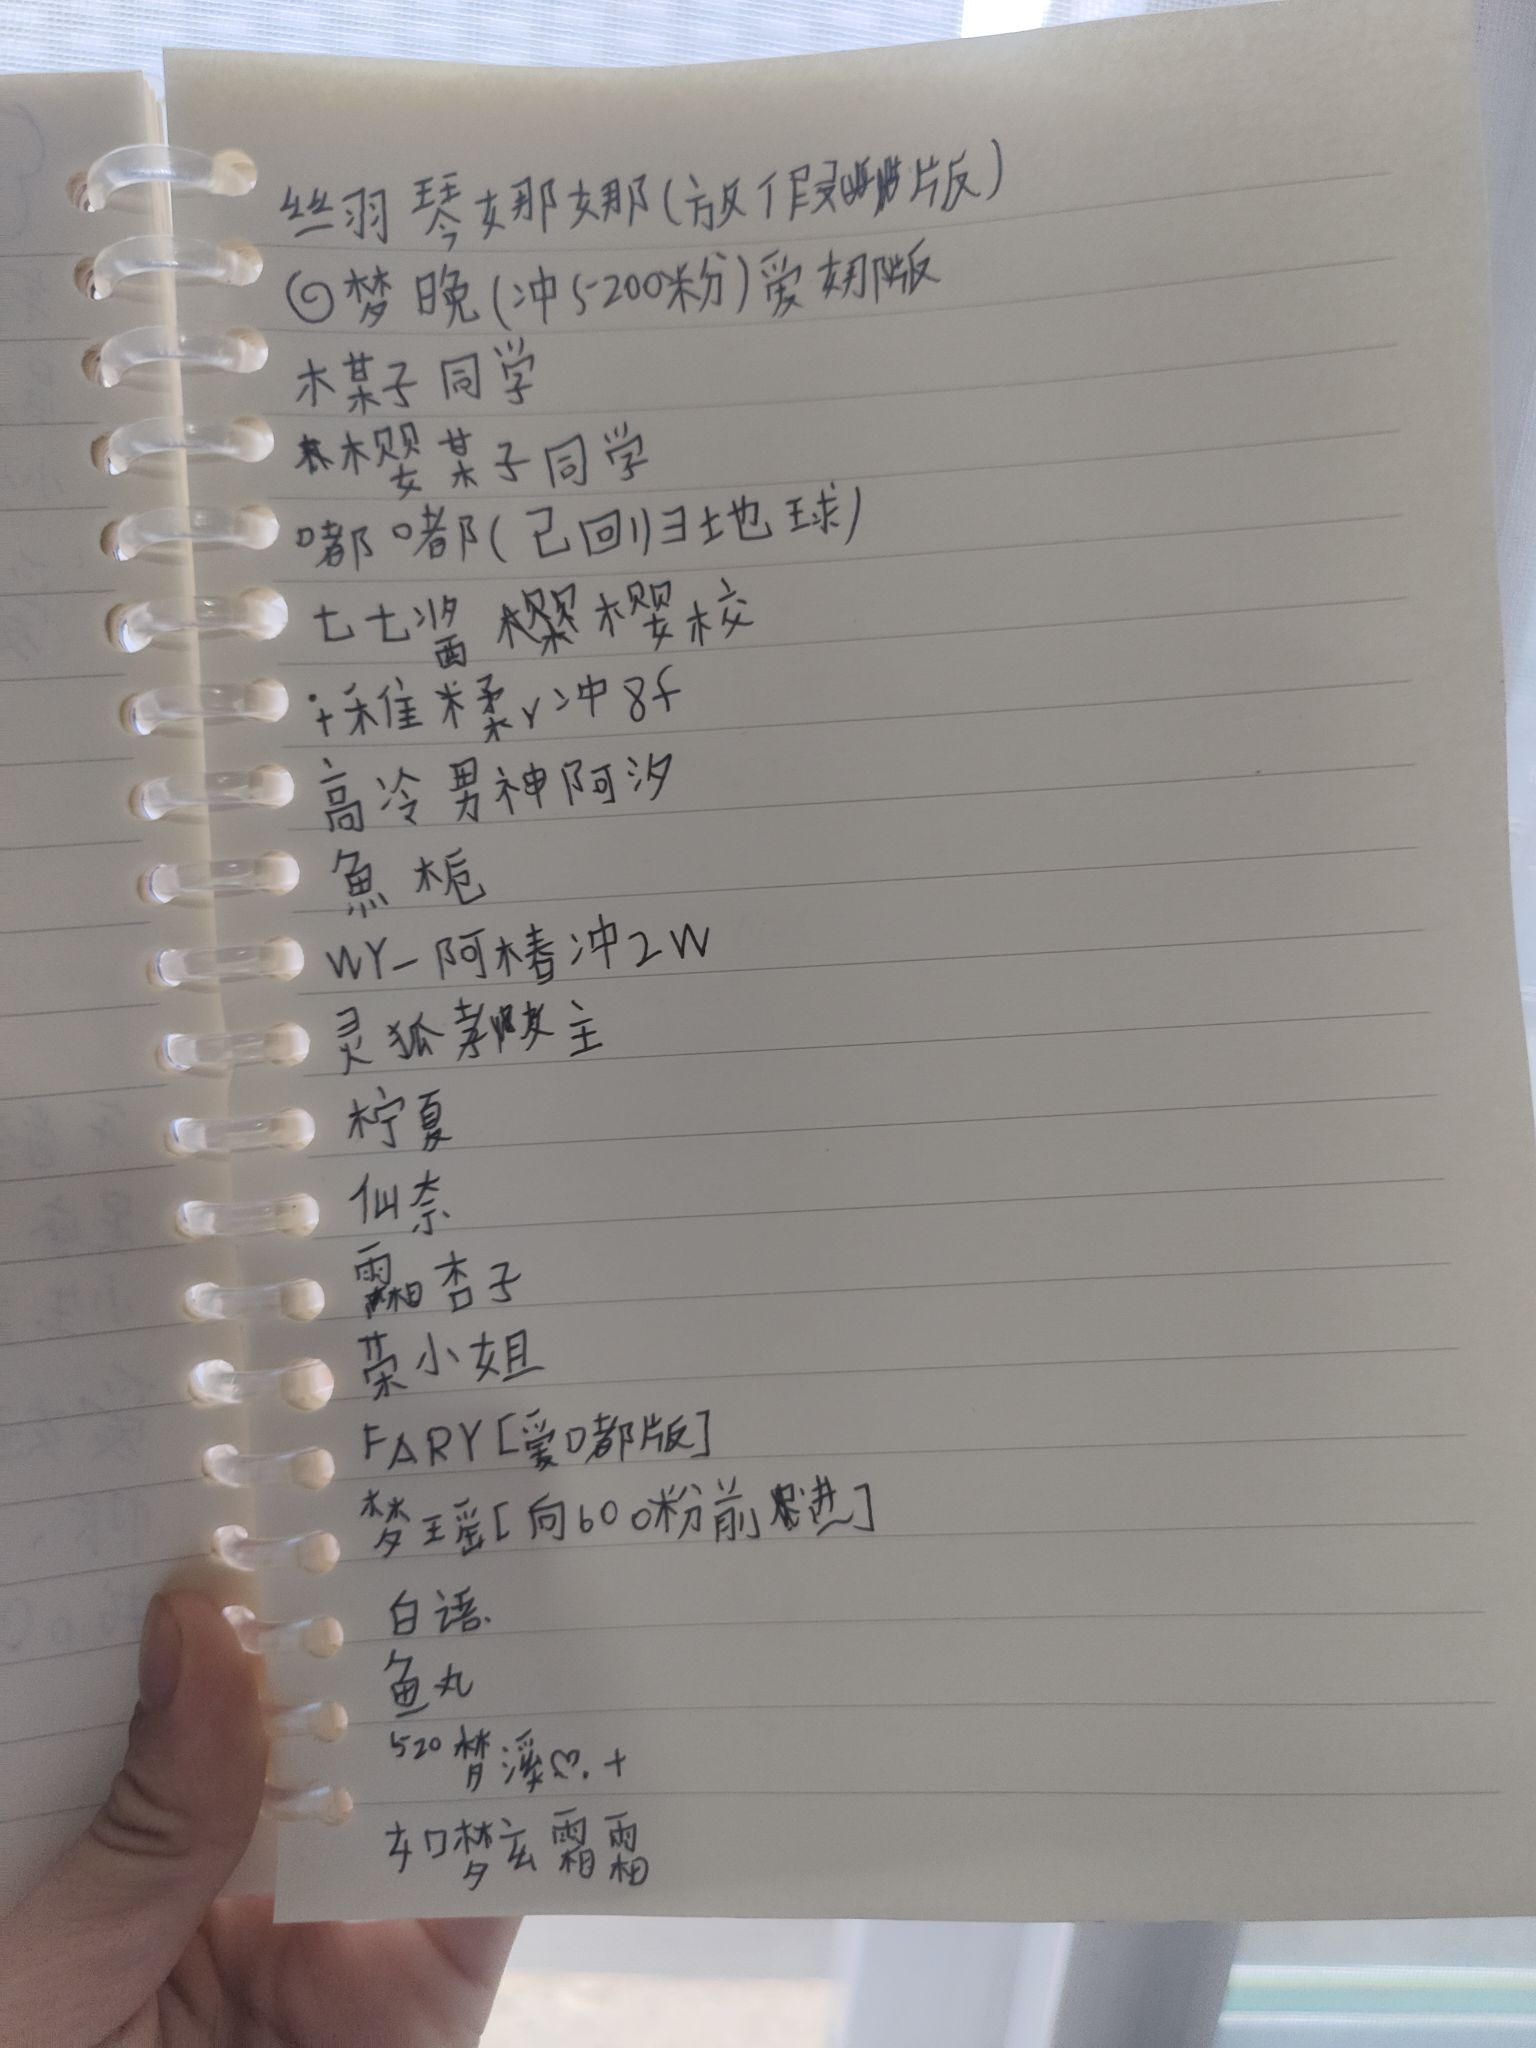 丝羽琴娜娜(放假版)
梦晚(冲5200粉)爱娜版
木某子同学
樱某子同学
嘟嘟(己回归地球)
七七酱 樱校
稚糅r冲8f
高冷男神阿汐
魚栀
WY-阿椿冲2W
灵狐教主
柠夏
仙奈
霜杏子
荣小姐
FARY[爱嘟版]
梦瑶[向600粉前进]
白语.
鱼丸
520梦溪♡.+
如梦玄霜霜